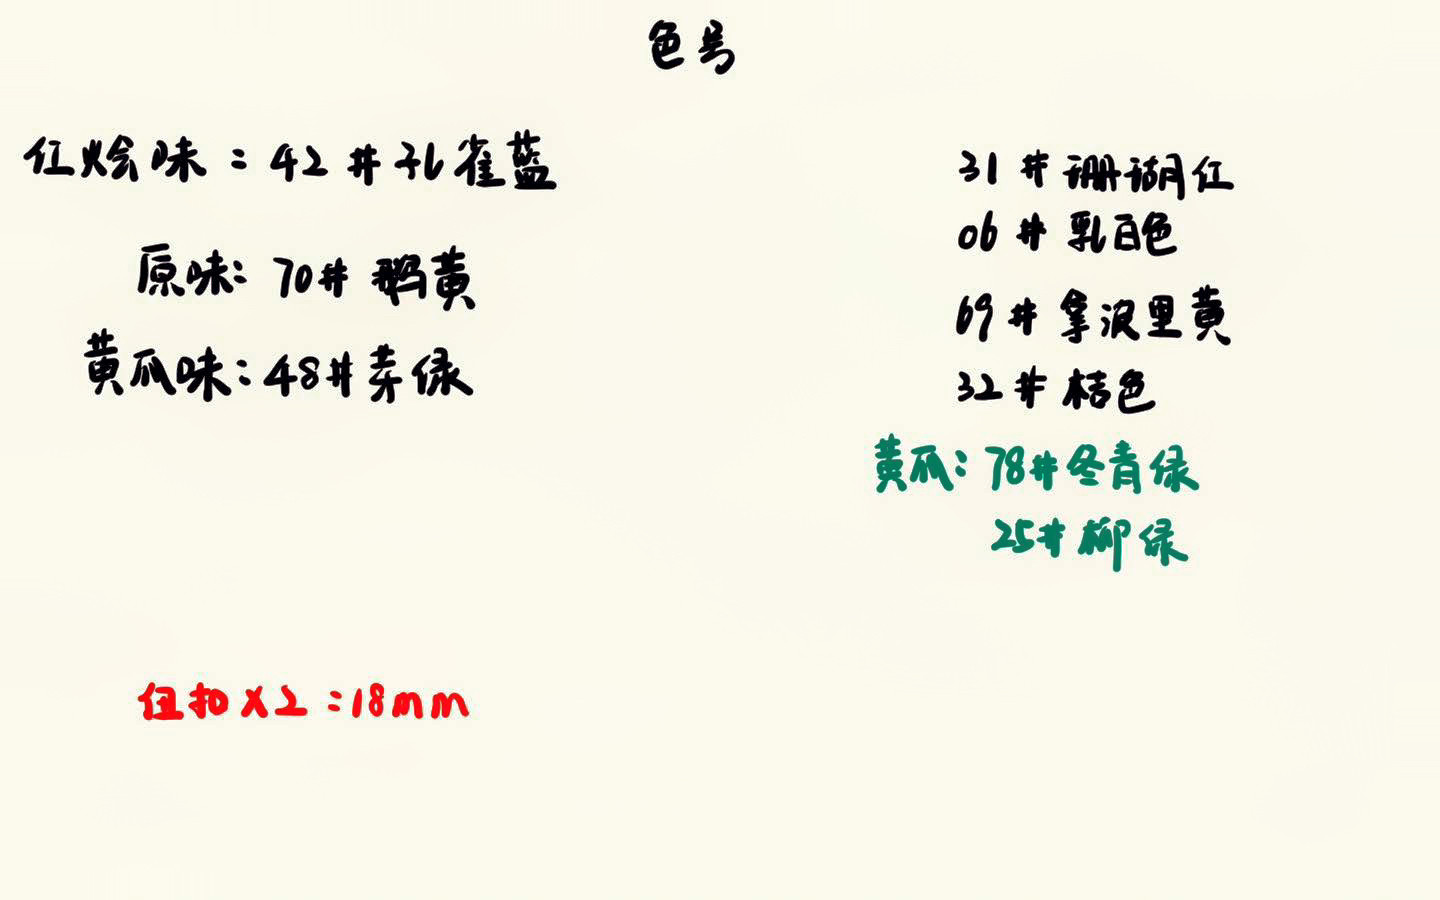 色号
红烩味：42#孔雀蓝
原味：70#鹅黄
黄瓜味：48#芽绿
31#珊瑚红
06#乳白色
69#拿波里黄
32#桔色
黄瓜：78#冬青绿
25#柳绿
纽扣X2：18mm